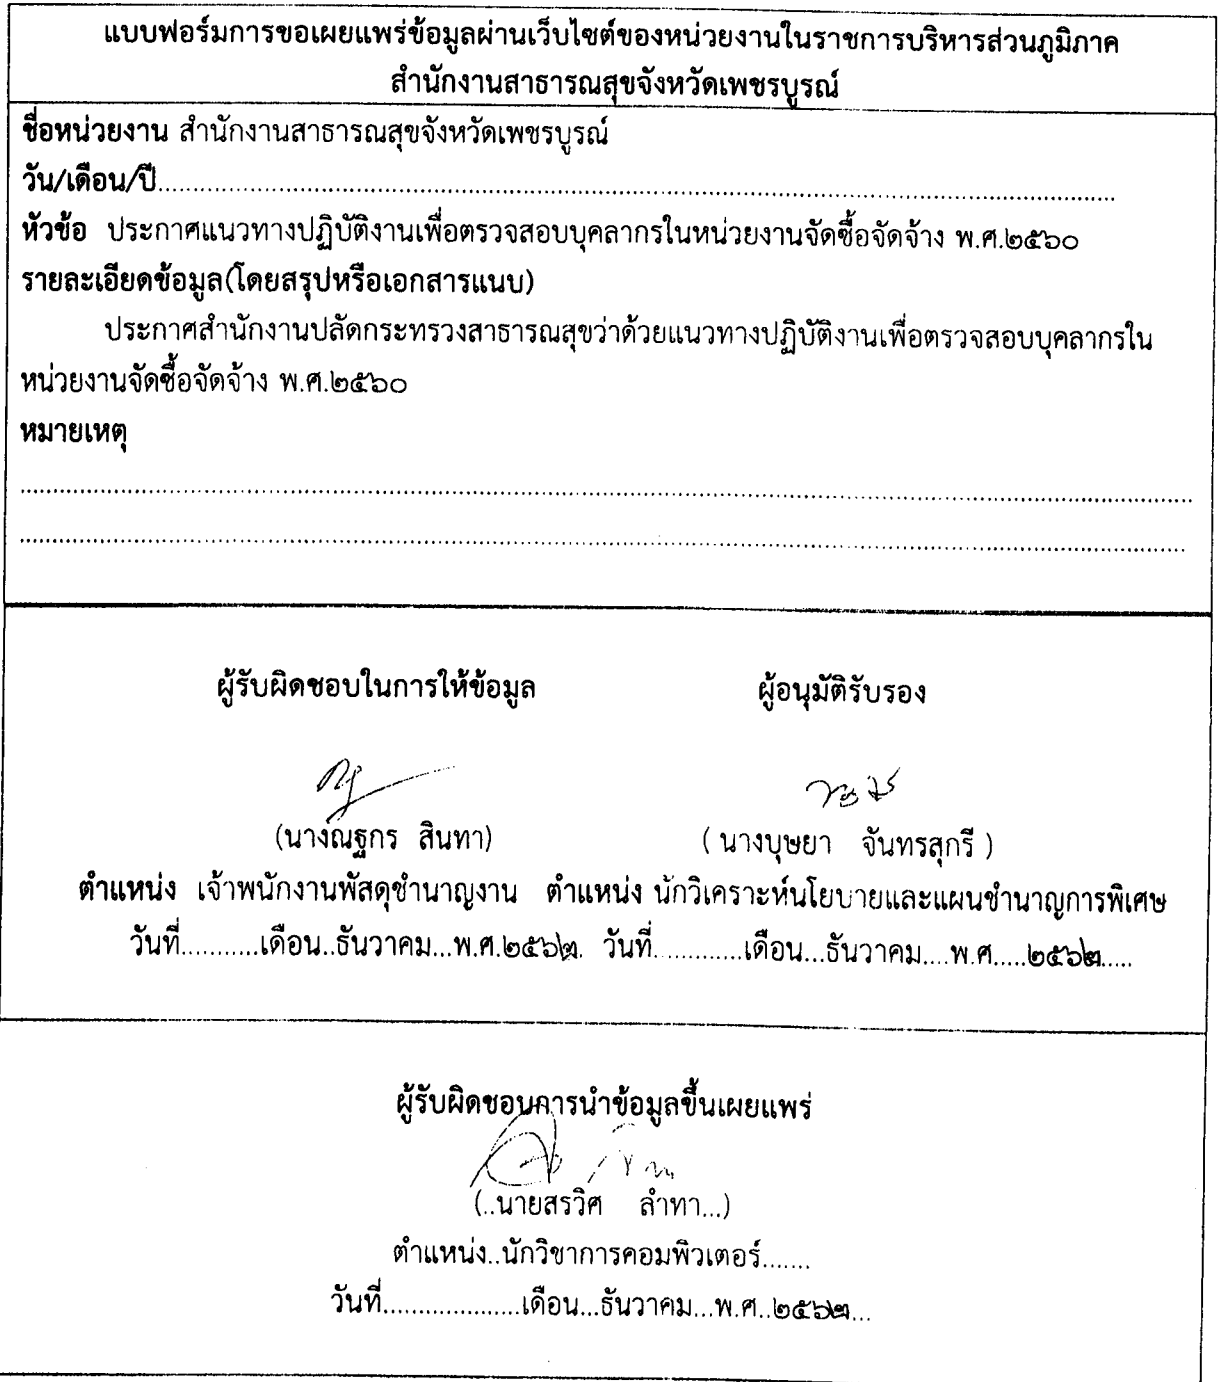 แบบฟอร์มการขอเผยแพร่ข้อมูลผ่านเว็บไซต์ของหน่วยงานในราชการบริหารส่วนภูมิภาค
สำนักงานสาธารณสุขจังหวัดเพชรบูรณ์
ชื่อหน่วยงาน สำนักงานสาธารณสุขจังหวัดเพชรบูรณ์
วัน/เดือน/ปี..........................................................................................................................
หัวข้อ ประกาศแนวทางปฏิบัติงานเพื่อตรวจสอบบุคลากรในหน่วยงานจัดซื้อจัดจ้าง พ.ศ.๒๕๖๐
รายละเอียดข้อมูล(โดยสรุปหรือเอกสารแนบ)
ประกาศสำนักงานปลัดกระทรวงสาธารณสุขว่าด้วยแนวทางปฏิบัติงานเพื่อตรวจสอบบุคลากรใน
หน่วยงานจัดซื้อจัดจ้าง พ.ศ.๒๕๖๐
หมายเหตุ
ผู้รับผิดชอบในการให้ข้อมูล ผู้อนุมัติรับรอง
(นางณฐกร สินทา) ( นางบุษยา จันทรสุกรี )
ตำแหน่ง เจ้าพนักงานพัสดุชำนาญงาน ตำแหน่ง นักวิเคราะห์นโยบายและแผนชำนาญการพิเศษ
วันที่...........เดือน..ธันวาคม...พ.ศ.๒๕๖๒. วันที่.............เดือน...ธันวาคม....พ.ศ.....๒๕๖๒.....
ผู้รับผิดชอบการนำข้อมูลขึ้นเผยแพร่
(..นายสรวิศ ลำทา...)
ตำแหน่ง..นักวิชาการคอมพิวเตอร์.......
วันที่....................เดือน...ธันวาคม...พ.ศ..๒๕๖๒...